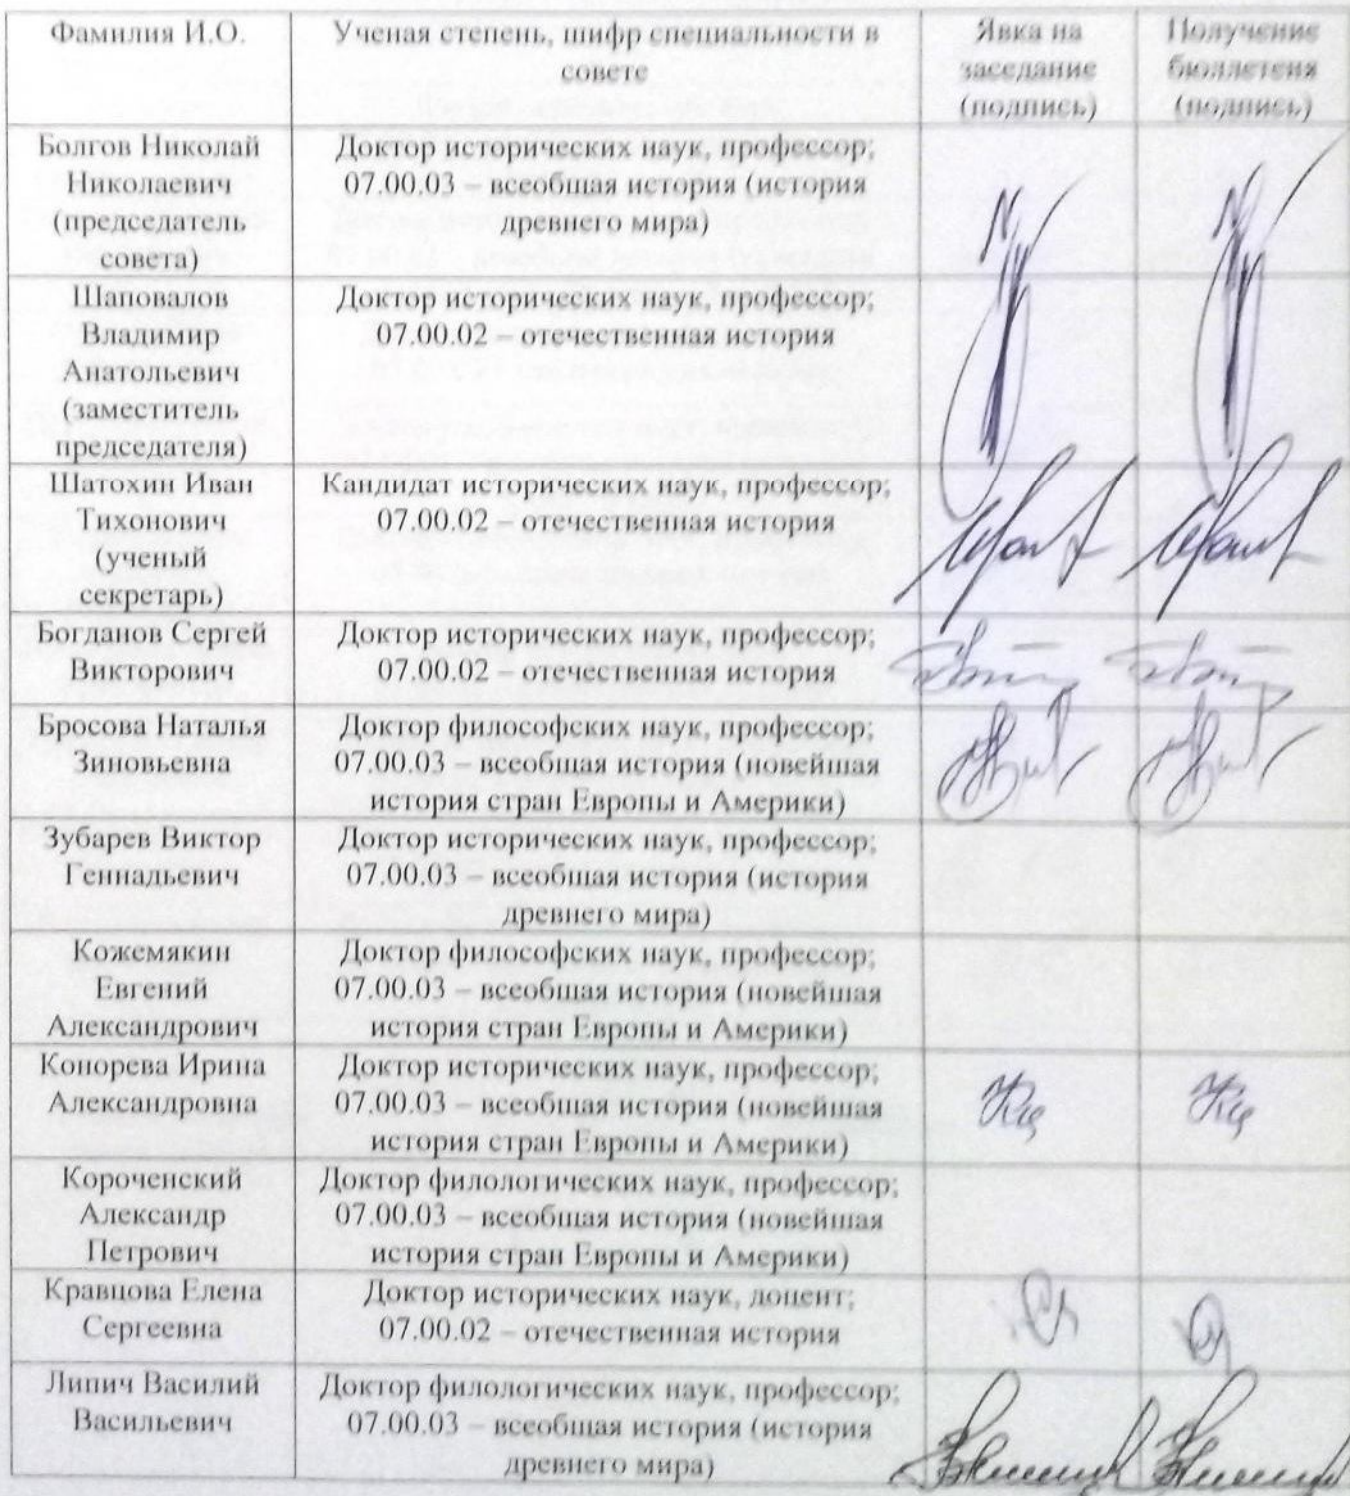 Фамилия И.О.
Ученая степень, шифр специальности в
совете
Явка на
заседание
(подпись)
Получение
бюллетеня
(подпись)
Болгов Николай
Николаевич
(председатель
совета)
Доктор исторических наук, профессор;
07.00.03 – всеобщая история (история
древнего мира)
Шаповалов
Владимир
Анатольевич
(заместитель
председателя)
Доктор исторических наук, профессор;
07.00.02 – отечественная история
Шатохин Иван
Тихонович
(ученый
секретарь)
Кандидат исторических наук, профессор;
07.00.02 – отечественная история
Богданов Сергей
Викторович
Доктор исторических наук, профессор;
07.00.02 – отечественная история
Бросова Наталья
Зиновьевна
Доктор философских наук, профессор;
07.00.03 – всеобщая история (новейшая
история стран Европы и Америки)
Зубарев Виктор
Геннадьевич
Доктор исторических наук, профессор;
07.00.03 – всеобщая история (история
древнего мира)
Кожемякин
Евгений
Александрович
Доктор философских наук, профессор;
07.00.03 – всеобщая история (новейшая
история стран Европы и Америки)
Конорева Ирина
Александровна
Доктор исторических наук, профессор;
07.00.03 – всеобщая история (новейшая
история стран Европы и Америки)
Короченский
Александр
Петрович
Доктор филологических наук, профессор;
07.00.03 – всеобщая история (новейшая
история стран Европы и Америки)
Кравцова Елена
Сергеевна
Доктор исторических наук, доцент;
07.00.02 – отечественная история
Липич Василий
Васильевич
Доктор филологических наук, профессор;
07.00.03 – всеобщая история (история
древнего мира)